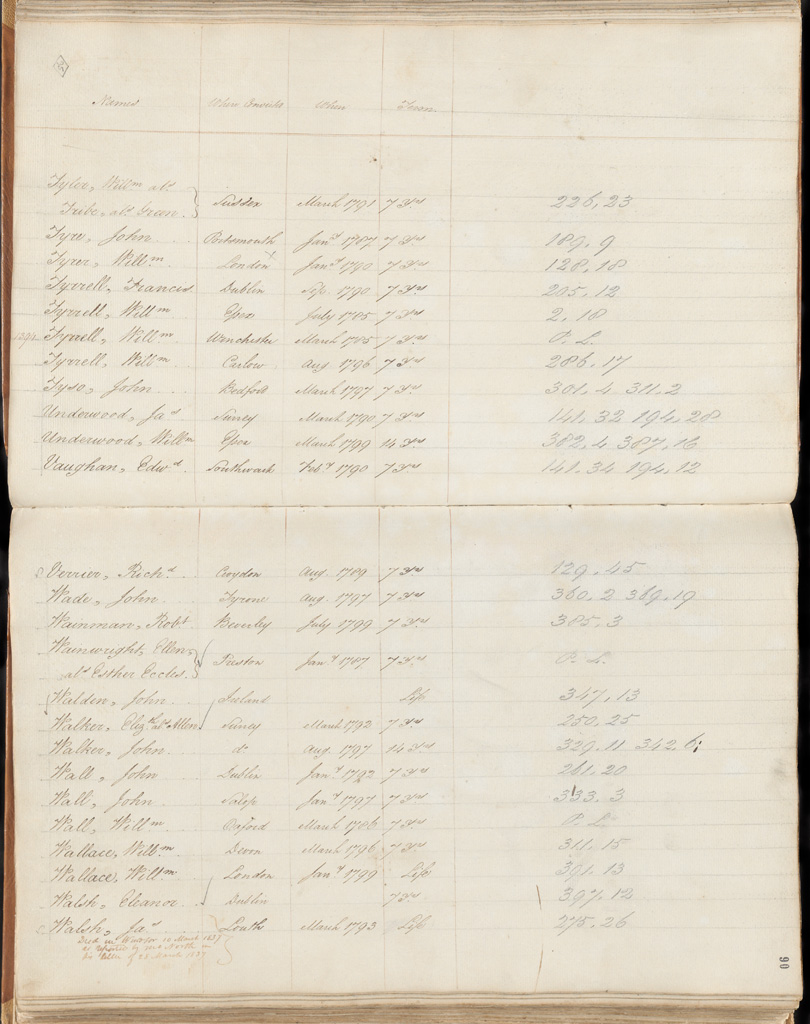 Names Where Convicted When Term
Tyler, Willm als
Tribe, als Green } Sussex March 1791 7 Yrs 226.23
Tyre, John Portsmouth Jany 1787 7 Yrs 189.9
Tyrer, Willm London Jany 1790 7 Yrs 128.18
Tyrrell, Francis Dublin Sep. 1790 7 Yrs 205.12
Tyrrell, Willm Essex July 1785 7 Yrs 2.18
Tyrrell, Willm Winchester March 1785 7 Yrs P. L.
Tyrrell, Willm Carlow Aug 1796 7 Yrs 286.17
Tyso, John Bedford March 1797 7 Yrs 301.4 311.2
Underwood, Jas Surrey March 1790 7 Yrs 141.32 194.28
Underwood, Willm Essex March 1799 14 Yrs 382.4 387.16
Vaughan, Edwd Southwark Feby 1790 7 Yrs 141.34 194.12
Verrier, Richd Croydon Aug. 1789 7 Yrs 129.45
Wade, John Tyrone Aug. 1797 7 Yrs 360.2 369.19
Wainman, Robt Beverley July 1799 7 Yrs 385.3
Wainwright, Ellen,
als Esther Eccles. } Preston Jany 1787 7 Yrs P. L.
Walden, John Ireland Life 347.13
Walker, Elizth als Allen Surrey March 1792 7 Yrs 250.25
Walker, John do Aug. 1797 14 Yrs 329.11 342.6
Wall, John Dublin Jany 1792 7 Yrs 261.20
Wall, John Salop Jany 1797 7 Yrs 333.3
Wall, Willm Oxford March 1786 7 Yrs P. L.
Wallace, Willm Devon March 1796 7 Yrs 311.15
Wallace, Willm London Jany 1799 Life 391.13
Walsh, Eleanor Dublin 7 Yrs 397.12
Walsh, Jas Louth March 1793 Life 275.26
Died in Windsor 10 March 1837
as reported by Mr North in
his letter of 28 March 1837
90